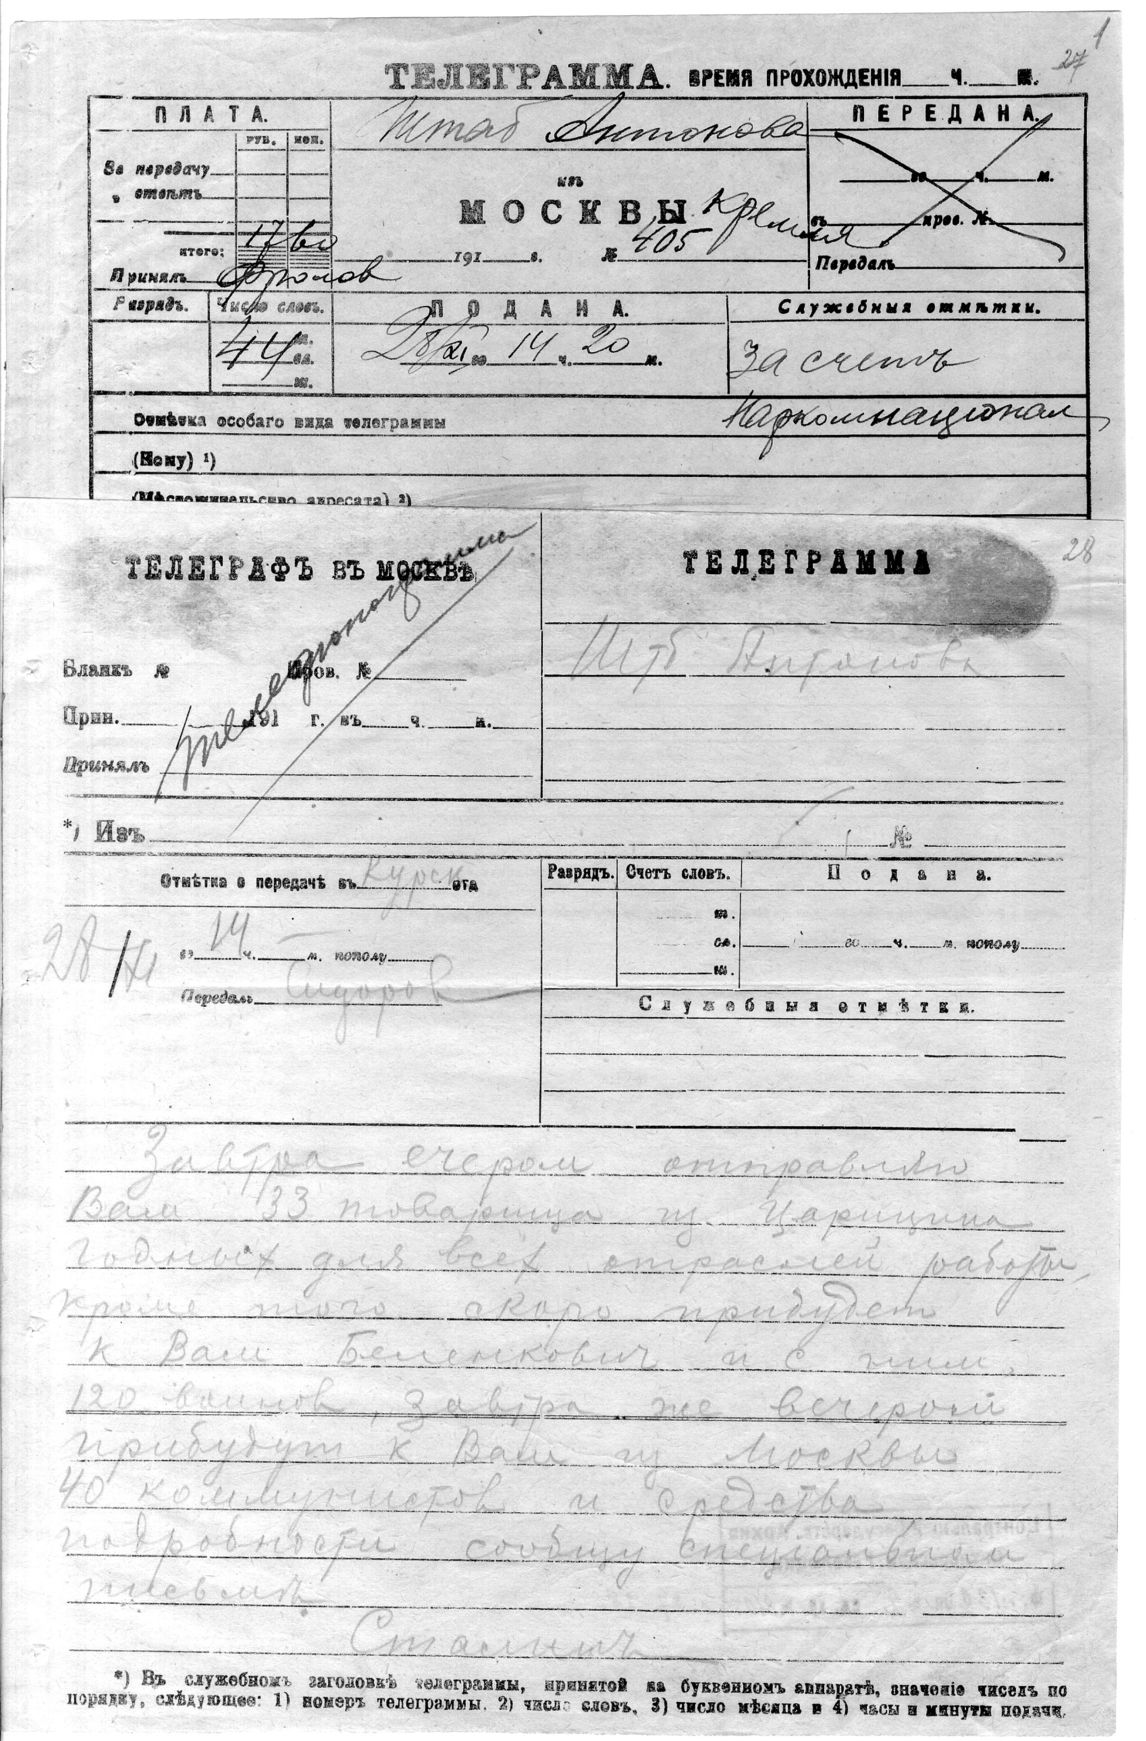 1
27
ТЕЛЕГРАММА. ВРЕМЯ ПРОХОЖДЕНІЯ Ч. М.
ПЛАТА.
РУБ. КОП.
За передачу
„ отвѣтъ
итого: 17 60
Принялъ Фролов
Штаб Антонова
изъ
МОСКВЫ Кремля
191 г. № 405
ПЕРЕДАНА.
го ч. м.
въ пров. №
Передалъ
Разрядъ.
Число словъ.
44
сл.
ПОДАНА.
28/XI го 14 ч. 20 м.
Служебныя отмѣтки.
За счетъ
Наркомнационал
Отмѣтка особаго вида телеграммы
(Кому) ¹)
(Мѣстожительство адресата) ²)
28
ТЕЛЕГРАФЪ ВЪ МОСКВѢ
телефонограмма
Бланкъ № Пров. №
Прин. 191 г. въ ч. м.
Принялъ
ТЕЛЕГРАММА
Штб Антонова
*) Изъ №
Отмѣтка о передачѣ въ Курск отд
28/XI
в 14 ч. — м. пополу
Передалъ Сидоров
Разрядъ. Счетъ словъ. Подана.
сл. го ч. м. пополу
Служебныя отмѣтки.
Завтра вечером отправляю
Вам 33 товарища из Царицына
годных для всех отраслей работы,
кроме того скоро прибудет
к Вам Беленкович и с ним
120 воинов, завтра же вечером
прибудут к Вам из Москвы
40 коммунистов и средства
подробности сообщу специальным
письмом
Сталинъ
*) Въ служебномъ заголовкѣ телеграммы, принятой на буквенномъ аппаратѣ, значеніе чиселъ по
порядку, слѣдующее: 1) номеръ телеграммы. 2) число словъ, 3) число мѣсяца и 4) часы и минуты подачи.